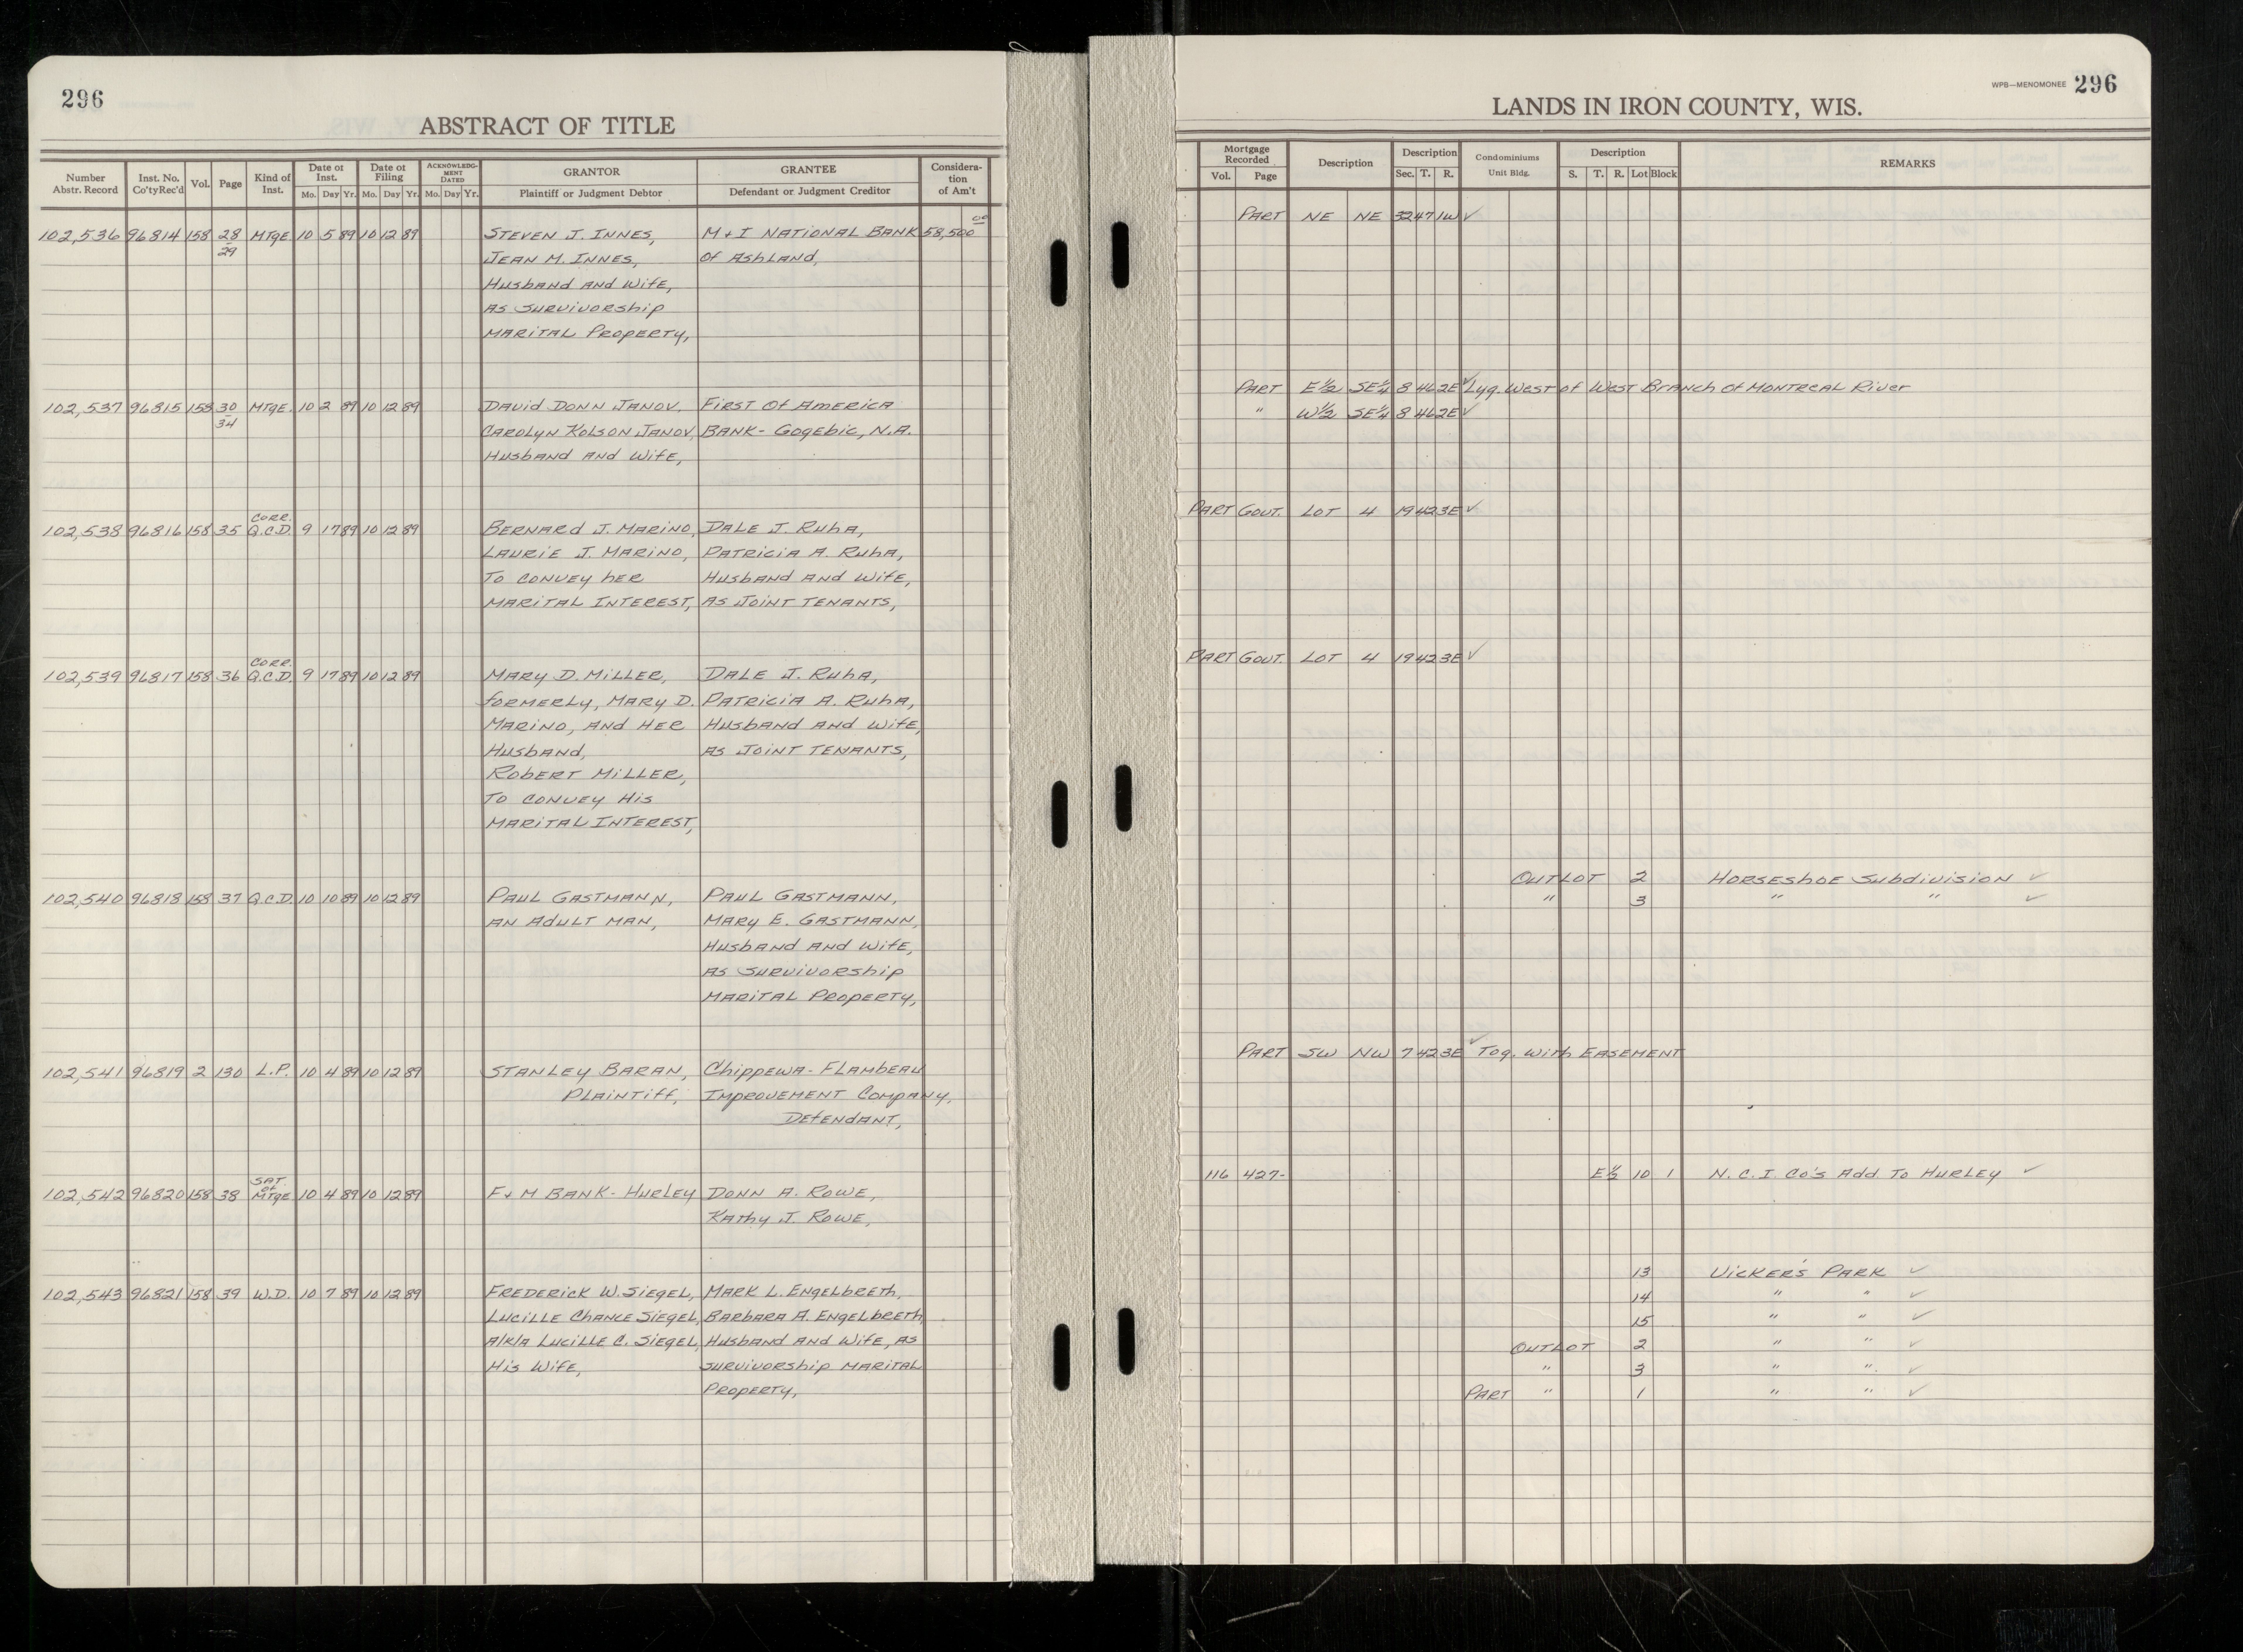 296
ABSTRACT OF TITLE
Number Abstr. Record | Inst. No. Co'tyRec'd | Vol. | Page | Kind of Inst. | Date of Inst. Mo. Day Yr. | Date of Filing Mo. Day Yr. | ACKNOWLEDGMENT DATED Mo. Day Yr. | GRANTOR Plaintiff or Judgment Debtor | GRANTEE Defendant or Judgment Creditor | Consideration of Am't
102,536 96814 158 28/29 MTGE 10 5 89 10 12 89 STEVEN J. INNES, M & I NATIONAL BANK 58,500 00
JEAN M. INNES, Of ASHLAND,
HUSBAND AND WIFE,
AS SURVIVORSHIP
MARITAL PROPERTY,
102,537 96815 158 30/34 MTGE. 10 2 89 10 12 89 DAVID DONN JANOV. FIRST OF AMERICA
CAROLYN KOLSON JANOV, BANK- GOGEBIC, N.A.
HUSBAND AND WIFE,
102,538 96816 158 35 CORR. Q.C.D. 9 17 89 10 12 89 BERNARD J. MARINO, DALE J. RUHA,
LAURIE J. MARINO, PATRICIA A. RUHA,
TO CONVEY HER HUSBAND AND WIFE,
MARITAL INTEREST, AS JOINT TENANTS,
102,539 96817 158 36 CORR. Q.C.D. 9 17 89 10 12 89 MARY D. MILLER, DALE J. RUHA,
FORMERLY, MARY D. PATRICIA A. RUHA,
MARINO, AND HER HUSBAND AND WIFE,
HUSBAND, AS JOINT TENANTS,
ROBERT MILLER,
TO CONVEY HIS
MARITAL INTEREST,
102,540 96818 158 37 Q.C.D. 10 10 89 10 12 89 PAUL GASTMANN, PAUL GASTMANN,
AN ADULT MAN, MARY E. GASTMANN,
HUSBAND AND WIFE,
AS SURVIVORSHIP
MARITAL PROPERTY,
102,541 96819 2 130 L.P. 10 4 89 10 12 89 STANLEY BARAN, CHIPPEWA-FLAMBEAU
PLAINTIFF, IMPROVEMENT COMPANY,
DEFENDANT,
102,542 96820 158 38 SAT. OF MTGE 10 4 89 10 12 89 F & M BANK-HURLEY DONN A. ROWE,
KATHY J. ROWE,
102,543 96821 158 39 W.D. 10 7 89 10 12 89 FREDERICK W. SIEGEL, MARK L. ENGELBRETH,
LUCILLE CHANCE SIEGEL, BARBARA A. ENGELBRETH,
A/K/A LUCILLE C. SIEGEL, HUSBAND AND WIFE, AS
HIS WIFE, SURVIVORSHIP MARITAL
PROPERTY,
WPB—MENOMONEE 296
LANDS IN IRON COUNTY, WIS.
Mortgage Recorded Vol. Page | Description | Description Sec. T. R. | Condominiums Unit Bldg. | Description S. T. R. Lot Block | REMARKS
PART NE NE 32 47 1W ✓
PART E½ SE¼ 8 46 2E ✓ Lyg. West of West Branch of MONTREAL River
" W½ SE¼ 8 46 2E ✓
PART GOVT. LOT 4 19 42 3E ✓
PART GOVT. LOT 4 19 42 3E ✓
OUTLOT 2 HORSESHOE SUBDIVISION ✓
" 3 " " ✓
PART SW NW 7 42 3E ✓ Tog. With EASEMENT
116 427- E½ 10 1 N.C.I. Co's Add. To HURLEY ✓
13 VICKER'S PARK ✓
14 " " ✓
15 " " ✓
OUTLOT 2 " " ✓
" 3 " " ✓
PART " 1 " " ✓